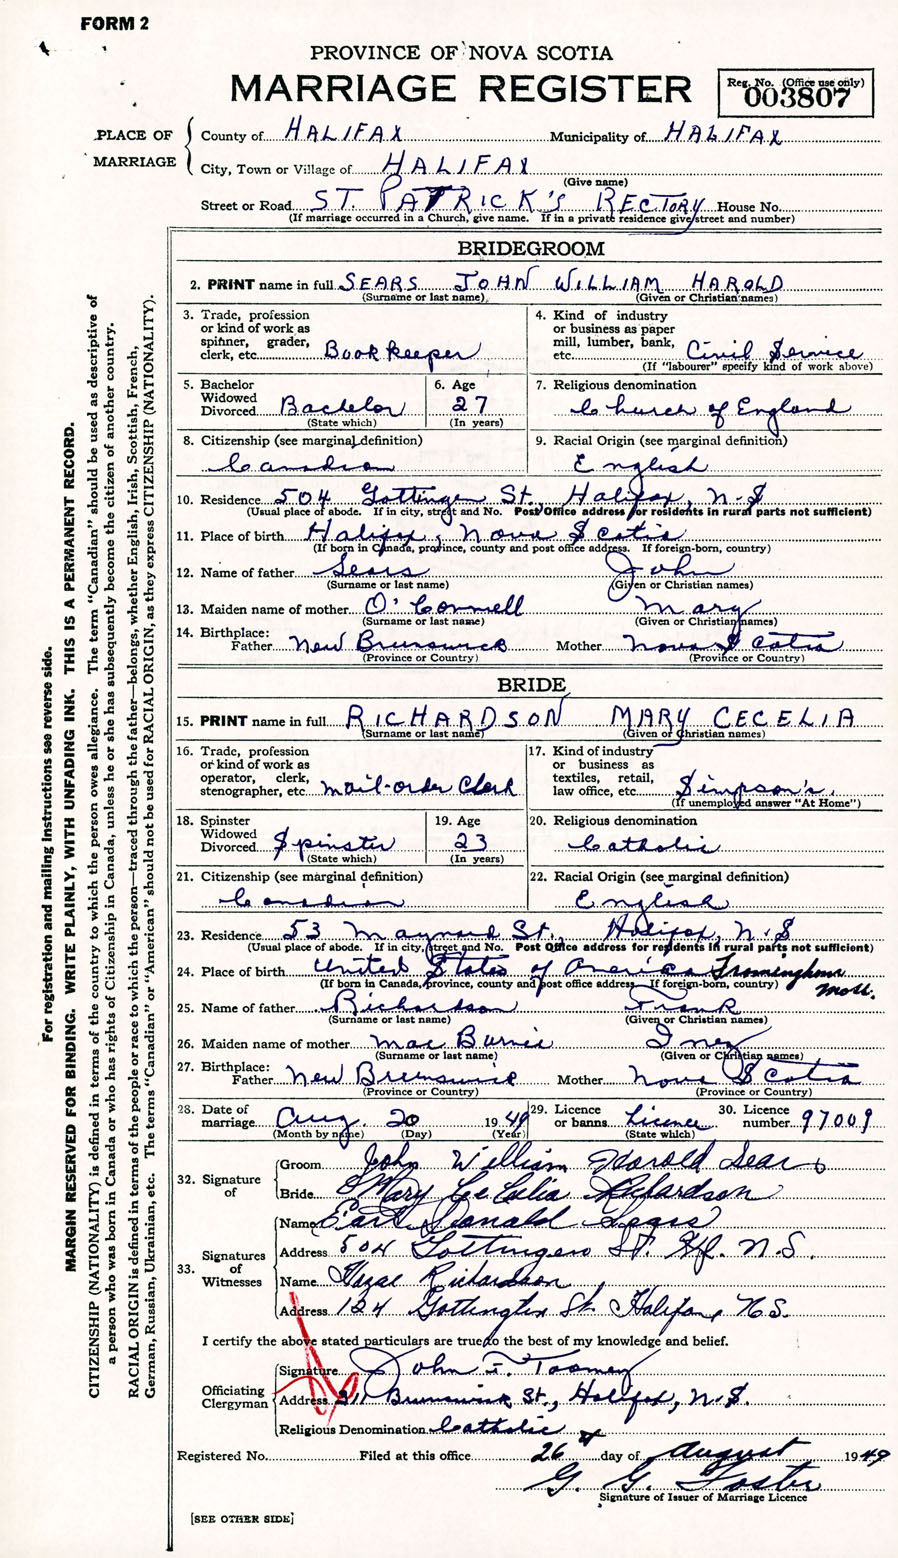 FORM 2
PROVINCE OF NOVA SCOTIA
MARRIAGE REGISTER
Reg. No. (Office use only)
003807
PLACE OF MARRIAGE
County of HALIFAX Municipality of HALIFAX
City, Town or Village of HALIFAX
(Give name)
Street or Road ST. PATRICK'S RECTORY House No.
(If marriage occurred in a Church, give name. If in a private residence give street and number)
BRIDEGROOM
2. PRINT name in full SEARS JOHN WILLIAM HAROLD
(Surname or last name) (Given or Christian names)
3. Trade, profession or kind of work as spinner, grader, clerk, etc. Bookkeeper
4. Kind of industry or business as paper mill, lumber, bank, etc. Civil Service
(If "labourer" specify kind of work above)
5. Bachelor Widowed Divorced Bachelor
(State which)
6. Age 27
(In years)
7. Religious denomination
Church of England
8. Citizenship (see marginal definition)
Canadian
9. Racial Origin (see marginal definition)
English
10. Residence 504 Gottingen St., Halifax, N.S
(Usual place of abode. If in city, street and No. Post Office address for residents in rural parts not sufficient)
11. Place of birth Halifax, Nova Scotia
(If born in Canada, province, county and post office address. If foreign-born, country)
12. Name of father Sears John
(Surname or last name) (Given or Christian names)
13. Maiden name of mother O'Connell Mary
(Surname or last name) (Given or Christian names)
14. Birthplace:
Father New Brunswick Mother Nova Scotia
(Province or Country) (Province or Country)
BRIDE
15. PRINT name in full RICHARDSON MARY CECELIA
(Surname or last name) (Given or Christian names)
16. Trade, profession or kind of work as operator, clerk, stenographer, etc. Mail-order Clerk
17. Kind of industry or business as textiles, retail, law office, etc. Simpson's.
(If unemployed answer "At Home")
18. Spinster Widowed Divorced Spinster
(State which)
19. Age 23
(In years)
20. Religious denomination
Catholic
21. Citizenship (see marginal definition)
Canadian
22. Racial Origin (see marginal definition)
English
23. Residence 53 Maynard St., Halifax, N.S
(Usual place of abode. If in city, street and No. Post Office address for residents in rural parts not sufficient)
24. Place of birth United States of America Framingham Mass.
(If born in Canada, province, county and post office address. If foreign-born, country)
25. Name of father Richardson Frank
(Surname or last name) (Given or Christian names)
26. Maiden name of mother Mac Burnie Inez
(Surname or last name) (Given or Christian names)
27. Birthplace:
Father New Brunswick Mother Nova Scotia
(Province or Country) (Province or Country)
28. Date of marriage Aug. 20 1949
(Month by name) (Day) (Year)
29. Licence or banns Licence
(State which)
30. Licence number 97009
32. Signature of
Groom John William Harold Sears
Bride Mary Cecelia Richardson
33. Signatures of Witnesses
Name Earl Donald Sears
Address 504 Gottingen St. Hfx. N.S.
Name Richardson
Address 124 Gottingen St. Halifax, N.S.
I certify the above stated particulars are true to the best of my knowledge and belief.
Officiating Clergyman
Signature John F. Toomey
Address 211 Brunswick St., Halifax, N.S.
Religious Denomination Catholic
Registered No. Filed at this office 26th day of August 1949
G. G. Foster
Signature of Issuer of Marriage Licence
[SEE OTHER SIDE]
For registration and mailing instructions see reverse side.
MARGIN RESERVED FOR BINDING. WRITE PLAINLY, WITH UNFADING INK. THIS IS A PERMANENT RECORD.
CITIZENSHIP (NATIONALITY) is defined in terms of the country to which the person owes allegiance. The term "Canadian" should be used as descriptive of
a person who was born in Canada or who has rights of Citizenship in Canada, unless he or she has subsequently become the citizen of another country.
RACIAL ORIGIN is defined in terms of the people or race to which the person—traced through the father—belongs, whether English, Irish, Scottish, French,
German, Russian, Ukrainian, etc. The terms "Canadian" or "American" should not be used for RACIAL ORIGIN, as they express CITIZENSHIP (NATIONALITY).